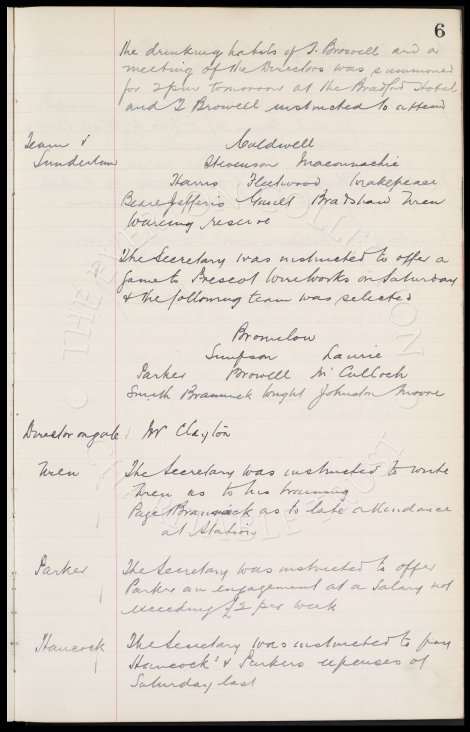 6
the drinking habits of T. Browell and a
meeting of the Directors was summoned
for 2 pm tomorrow at the Bradford Hotel
and T Browell instructed to attend
Team v Caldwell
Sunderland Stevenson Maconnachie
Harris Fleetwood Makepeace
Beare Jefferis Gault Bradshaw Wren
Wareing reserve
The Secretary was instructed to offer a
game to Prescot Wireworks on Saturday
& the following team was selected
Bromilow
Simpson Laurie
Parker Browell McCulloch
Smith Brannick Wright Johnston Moore
Director on gate Mr Clayton
Wren The Secretary was instructed to write
Wren as to his training
Page & Brannick as to late attendance
at Station
Parker The Secretary was instructed to offer
Parker an engagement at a salary not
exceeding £2 per week
Hancock The Secretary was instructed to pay
Hancock's & Parkers expenses of
Saturday last
THE EVERTON COLLECTION
CHARITABLE TRUST